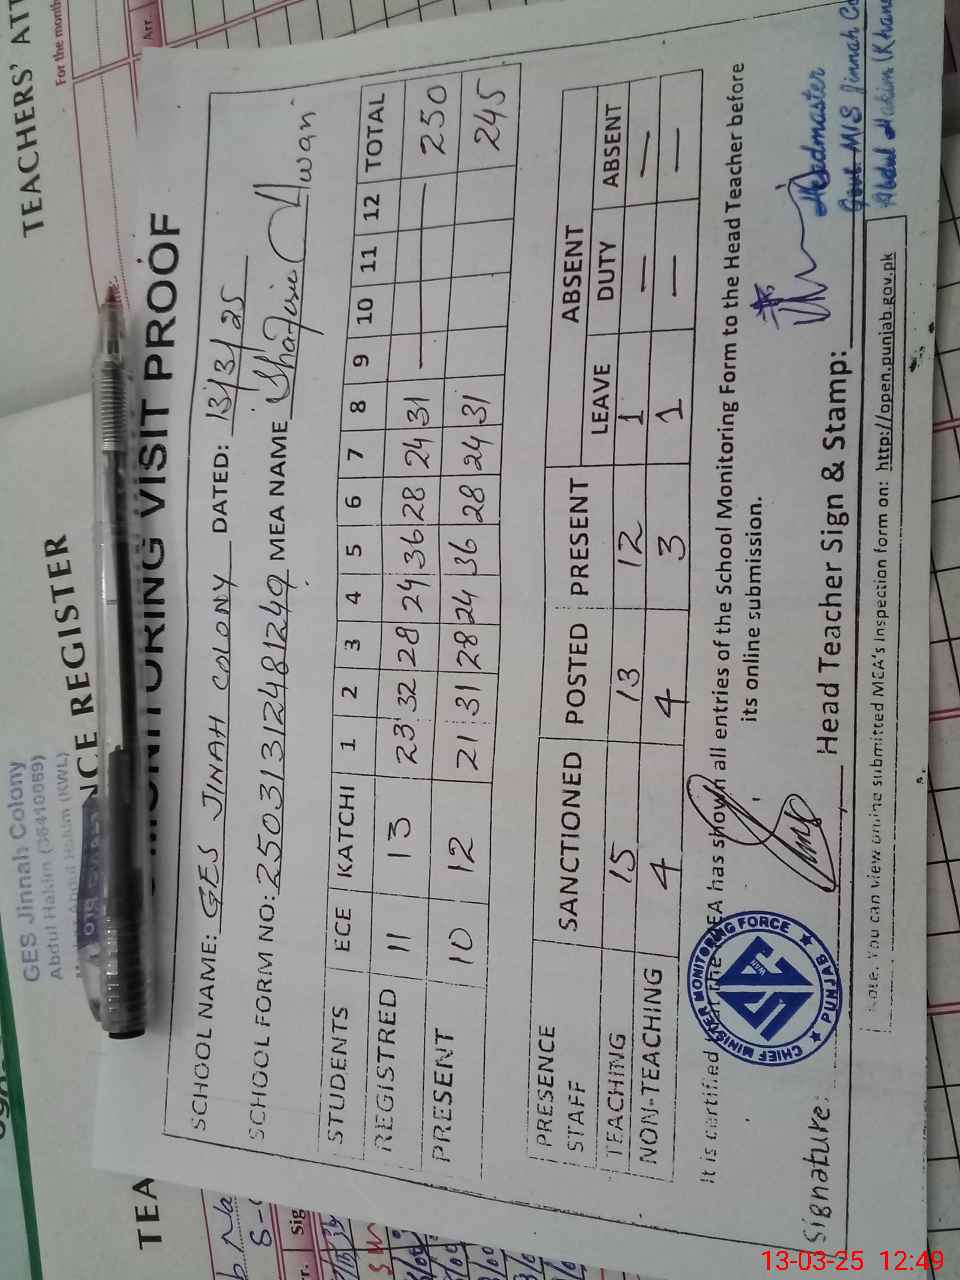 TEACHERS' ATT
For the month
Arr
GES Jinnah Colony
Abdul Hakim (38410069)
Abdul Hakim (KWL)
NCE REGISTER
TEA
MONITORING VISIT PROOF
SCHOOL NAME: GES JINAH COLONY DATED: 13/3/25
SCHOOL FORM NO: 25031312481249 MEA NAME Awan
STUDENTS ECE KATCHI 1 2 3 4 5 6 7 8 9 10 11 12 TOTAL
REGISTRED 11 13 23 32 28 24 36 28 24 31 — — — — 250
PRESENT 10 12 21 31 28 24 36 28 24 31 245
PRESENCE SANCTIONED POSTED PRESENT ABSENT
STAFF LEAVE DUTY ABSENT
TEACHING 15 13 12 1 — —
NON-TEACHING 4 4 3 1 — —
It is certified that the MEA has shown all entries of the School Monitoring Form to the Head Teacher before
its online submission.
CHIEF MINISTER MONITORING FORCE
PUNJAB
Signature: Head Teacher Sign & Stamp:
Headmaster
Govt. M/S Jinnah Co
Abdul Hakim (Khan
Note. You can view online submitted MEA's Inspection form on: http://open.punjab.gov.pk
Sig
13-03-25 12:49